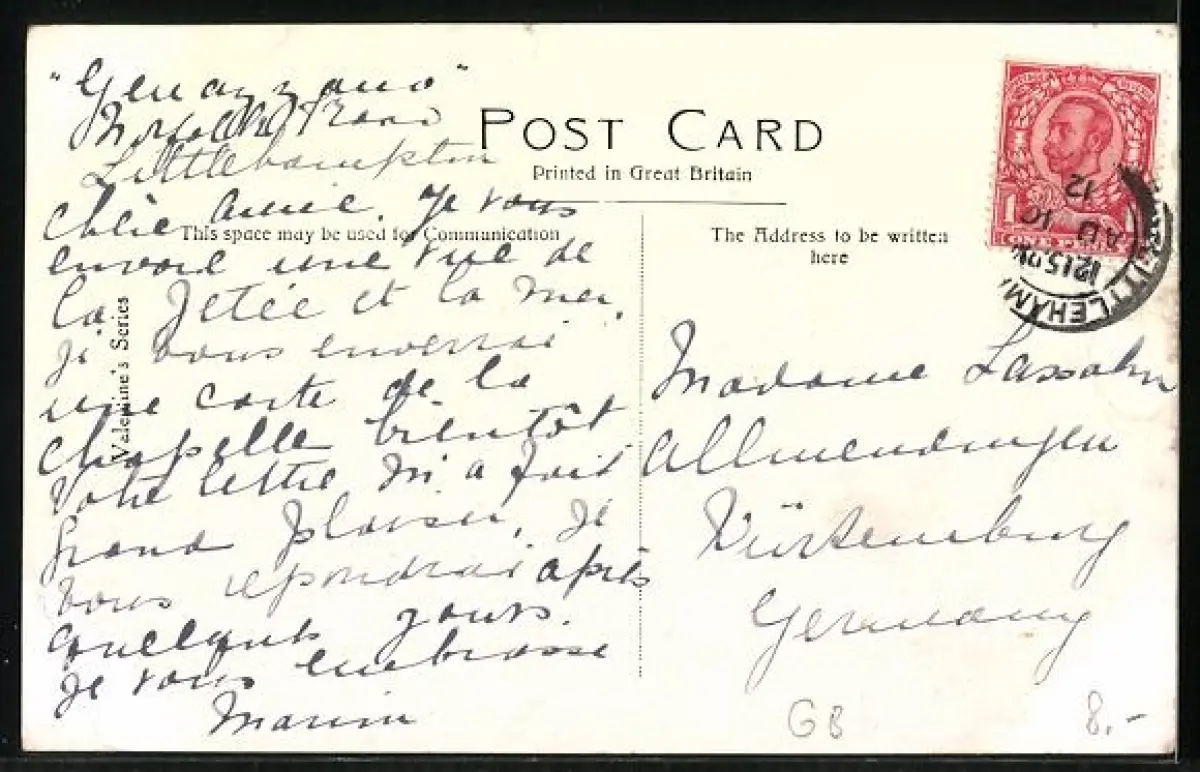 "Genazzano"
Norfolk Road
Littlehampton
POST CARD
Printed in Great Britain
This space may be used for Communication
The Address to be written
here
Valentine's Series
Chère Amie. Je vous
envoie une vue de
la Jetée et la mer.
Je vous enverrai
une carte de la
chapelle bientôt
Votre lettre m'a fait
grand plaisir, Je
vous repondrai après
quelques jours.
Je vous embrasse
Madame Lassahn
Allmendingen
Würtemburg
Germany
LITTLEHAM
12 15 PM
AU 10
12
GB
8.-